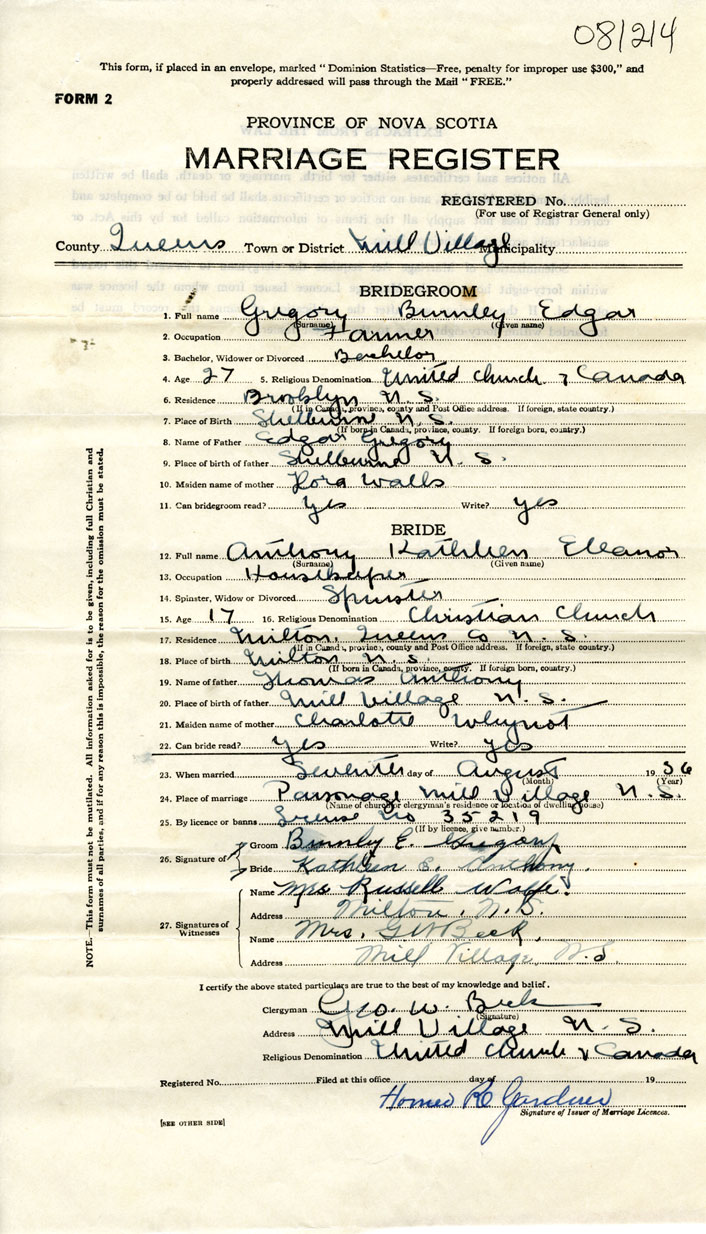 081214
This form, if placed in an envelope, marked "Dominion Statistics—Free, penalty for improper use $300," and
properly addressed will pass through the Mail "FREE."
FORM 2
PROVINCE OF NOVA SCOTIA
MARRIAGE REGISTER
REGISTERED No.
(For use of Registrar General only)
County Queens Town or District Mill Village Municipality
BRIDEGROOM
1. Full name Gregory Burnley Edgar
(Surname) (Given name)
2. Occupation Farmer
3. Bachelor, Widower or Divorced Bachelor
4. Age 27 5. Religious Denomination United Church of Canada
6. Residence Brooklyn N.S.
(If in Canada, province, county and Post Office address. If foreign, state country.)
7. Place of Birth Shelburne N.S.
(If born in Canada, province, county. If foreign born, country.)
8. Name of Father Edgar Gregory
9. Place of birth of father Shelburne N.S.
10. Maiden name of mother Walls
11. Can bridegroom read? Yes Write? yes
BRIDE
12. Full name Anthony Kathleen Eleanor
(Surname) (Given name)
13. Occupation Housekeeper
14. Spinster, Widow or Divorced Spinster
15. Age 17 16. Religious Denomination Christian Church
17. Residence Milton, Queens Co N.S.
(If in Canada, province, county and Post Office address. If foreign, state country.)
18. Place of birth Milton N.S.
(If born in Canada, province, county. If foreign born, country.)
19. Name of father Thomas Anthony
20. Place of birth of father Mill Village N.S.
21. Maiden name of mother Charlotte Whynot
22. Can bride read? Yes Write? yes
23. When married Seventh day of August 1936
(Month) (Year)
24. Place of marriage Parsonage Mill Village N.S.
(Name of church or clergyman's residence or location of dwelling house)
25. By licence or banns License No 35219
(If by licence, give number.)
26. Signature of
Groom Burnly E. Gregory
Bride Kathleen E. Anthony.
27. Signatures of Witnesses
Name Mrs Russell Wolfe.
Address Milton, N.S.
Name Mrs. G W Beck,
Address Mill Village N.S
I certify the above stated particulars are true to the best of my knowledge and belief.
Clergyman Geo. W. Beck
(Signature)
Address Mill Village N.S.
Religious Denomination United Church of Canada
Registered No. Filed at this office day of 19
Homer R Gardner
Signature of Issuer of Marriage Licences.
[SEE OTHER SIDE]
NOTE.—This form must not be mutilated. All information asked for is to be given, including full Christian and
surnames of all parties, and if for any reason this is impossible, the reason for the omission must be stated.